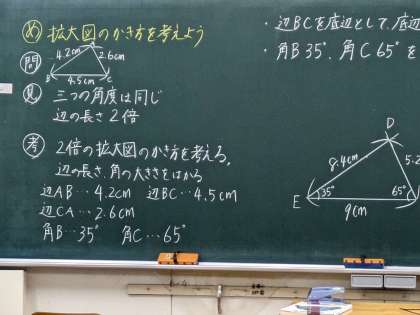 め 拡大図のかき方を考えよう
問 4.2cm 2.6cm
B 4.5cm C
見 三つの角度は同じ
辺の長さ2倍
考 2倍の拡大図のかき方を考える。
辺の長さ、角の大きさをはかる
辺AB…4.2cm 辺BC…4.5cm
辺CA…2.6cm
角B…35° 角C…65°
・辺BCを底辺として、底辺
・角B35°、角C65°を
D
8.4cm 5.2
E 35° 65°
9cm